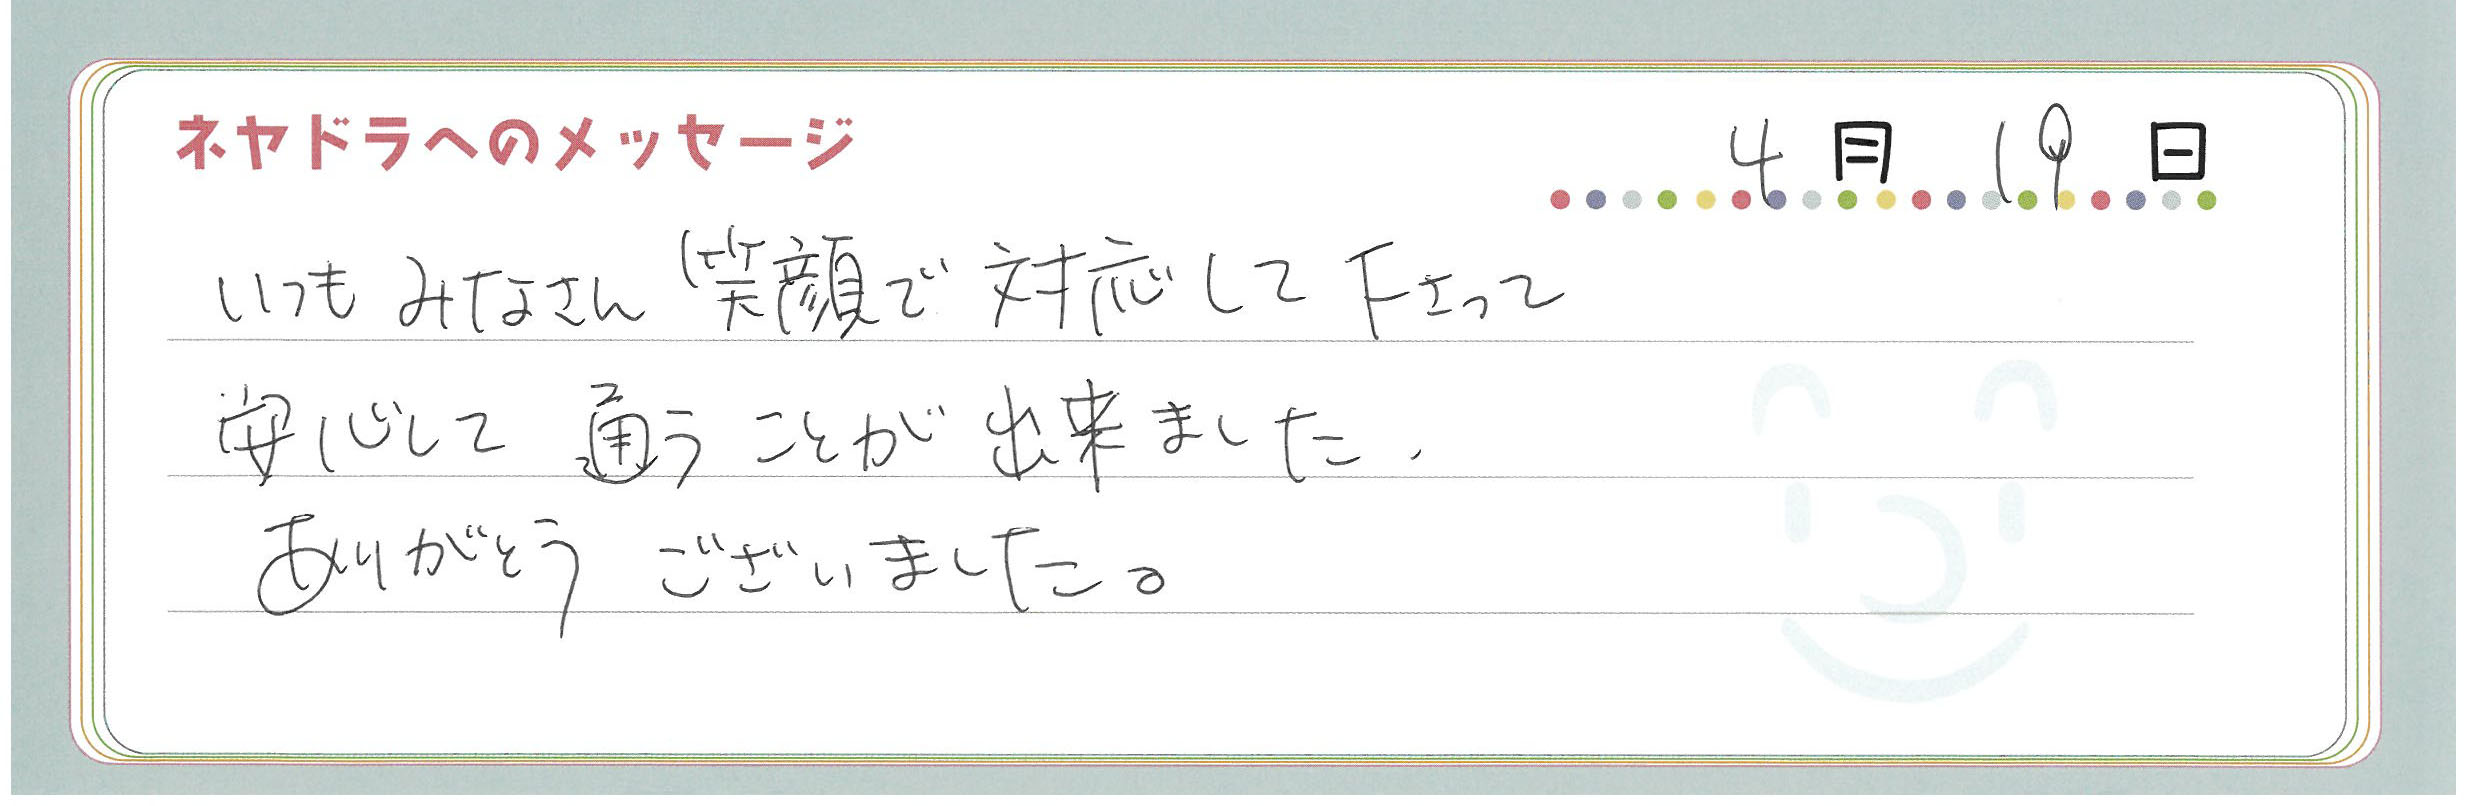 ネヤドラへのメッセージ
4月19日
いつもみなさん笑顔で対応して下さって
安心して通うことが出来ました.
ありがとうございました。